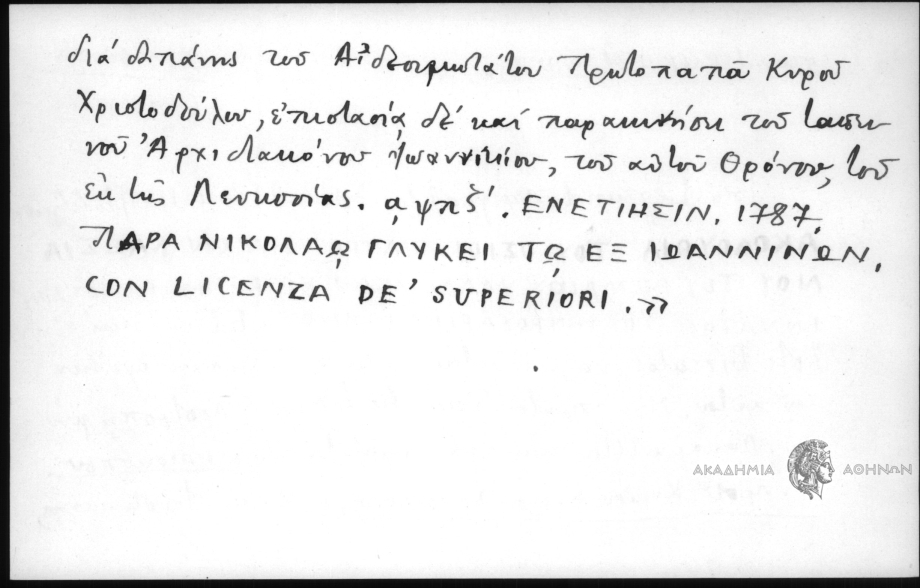 διά δαπάνης του Αἰδεσιμωτάτου Πρωτοπαπᾶ Κυροῦ
Χριστοδούλου, ἐπιστασίᾳ δέ καί παρακινήσει τοῦ ταπει
νοῦ Ἀρχιδιακόνου Ἰωαννικίου, τοῦ αὐτοῦ Θρόνου, τοῦ
ἐκ τῆς Λευκοσίας. αψπζ΄. ΕΝΕΤΙΗΣΙΝ, 1787,
ΠΑΡΑ ΝΙΚΟΛΑῼ ΓΛΥΚΕΙ Τῼ ΕΞ ΙΩΑΝΝΙΝΩΝ.
CON LICENZA DE' SUPERIORI.»
ΑΚΑΔΗΜΙΑ ΑΘΗΝΩΝ